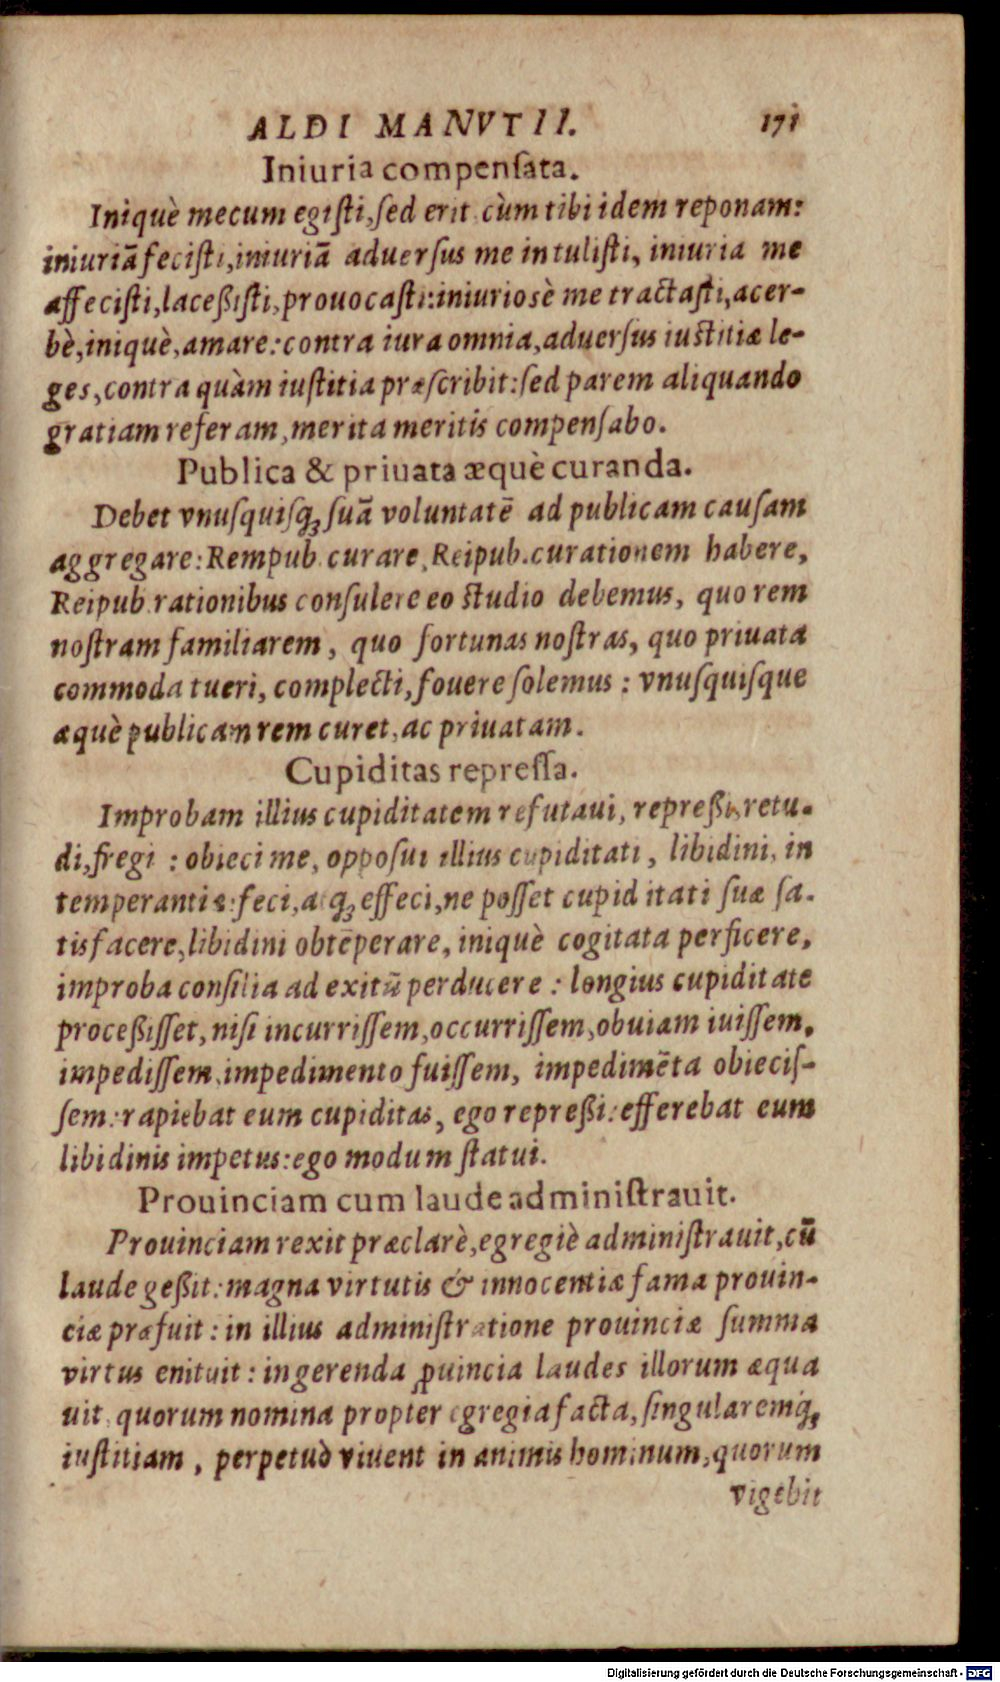 ALDI MANVTII. 171
Iniuria compenſata.
Iniquè mecum egiſti, ſed erit cùm tibi idem reponam:
iniuriā feciſti, iniuriā aduerſus me intuliſti, iniuria me
affeciſti, laceßiſti, prouocaſti: iniuriosè me tractaſti, acer-
bè, iniquè, amare: contra iura omnia, aduerſus iuſtitiæ le-
ges, contra quàm iuſtitia præſcribit: ſed parem aliquando
gratiam referam, merita meritis compenſabo.
Publica & priuata æquè curanda.
Debet vnuſquiſq; ſuā voluntatē ad publicam cauſam
aggregare: Rempub. curare, Reipub. curationem habere,
Reipub. rationibus conſulere eo ſtudio debemus, quo rem
noſtram familiarem, quo fortunas noſtras, quo priuata
commoda tueri, complecti, fouere ſolemus: vnuſquiſque
æquè publicam rem curet, ac priuatam.
Cupiditas repreſſa.
Improbam illius cupiditatem refutaui, repreßi, retu-
di, fregi: obieci me, oppoſui illius cupiditati, libidini, in
temperantiæ: feci, atq; effeci, ne poſſet cupiditati ſuæ ſa-
tisfacere, libidini obtēperare, iniquè cogitata perficere,
improba conſilia ad exitū perducere: longius cupiditate
proceßiſſet, niſi incurriſſem, occurriſſem, obuiam iuiſſem,
impediſſem, impedimento fuiſſem, impedimēta obieciſ-
ſem: rapiebat eum cupiditas, ego repreßi: efferebat eum
libidinis impetus: ego modum ſtatui.
Prouinciam cum laude adminiſtrauit.
Prouinciam rexit præclarè, egregiè adminiſtrauit, cū
laude geßit: magna virtutis & innocentiæ fama prouin-
ciæ præfuit: in illius adminiſtratione prouinciæ ſumma
virtus enituit: in gerenda ꝓuincia laudes illorum æqua
uit, quorum nomina propter egregia facta, ſingularemq́;
iuſtitiam, perpetuò viuent in animis hominum, quorum
vigebit
Digitalisierung gefördert durch die Deutsche Forschungsgemeinschaft - DFG